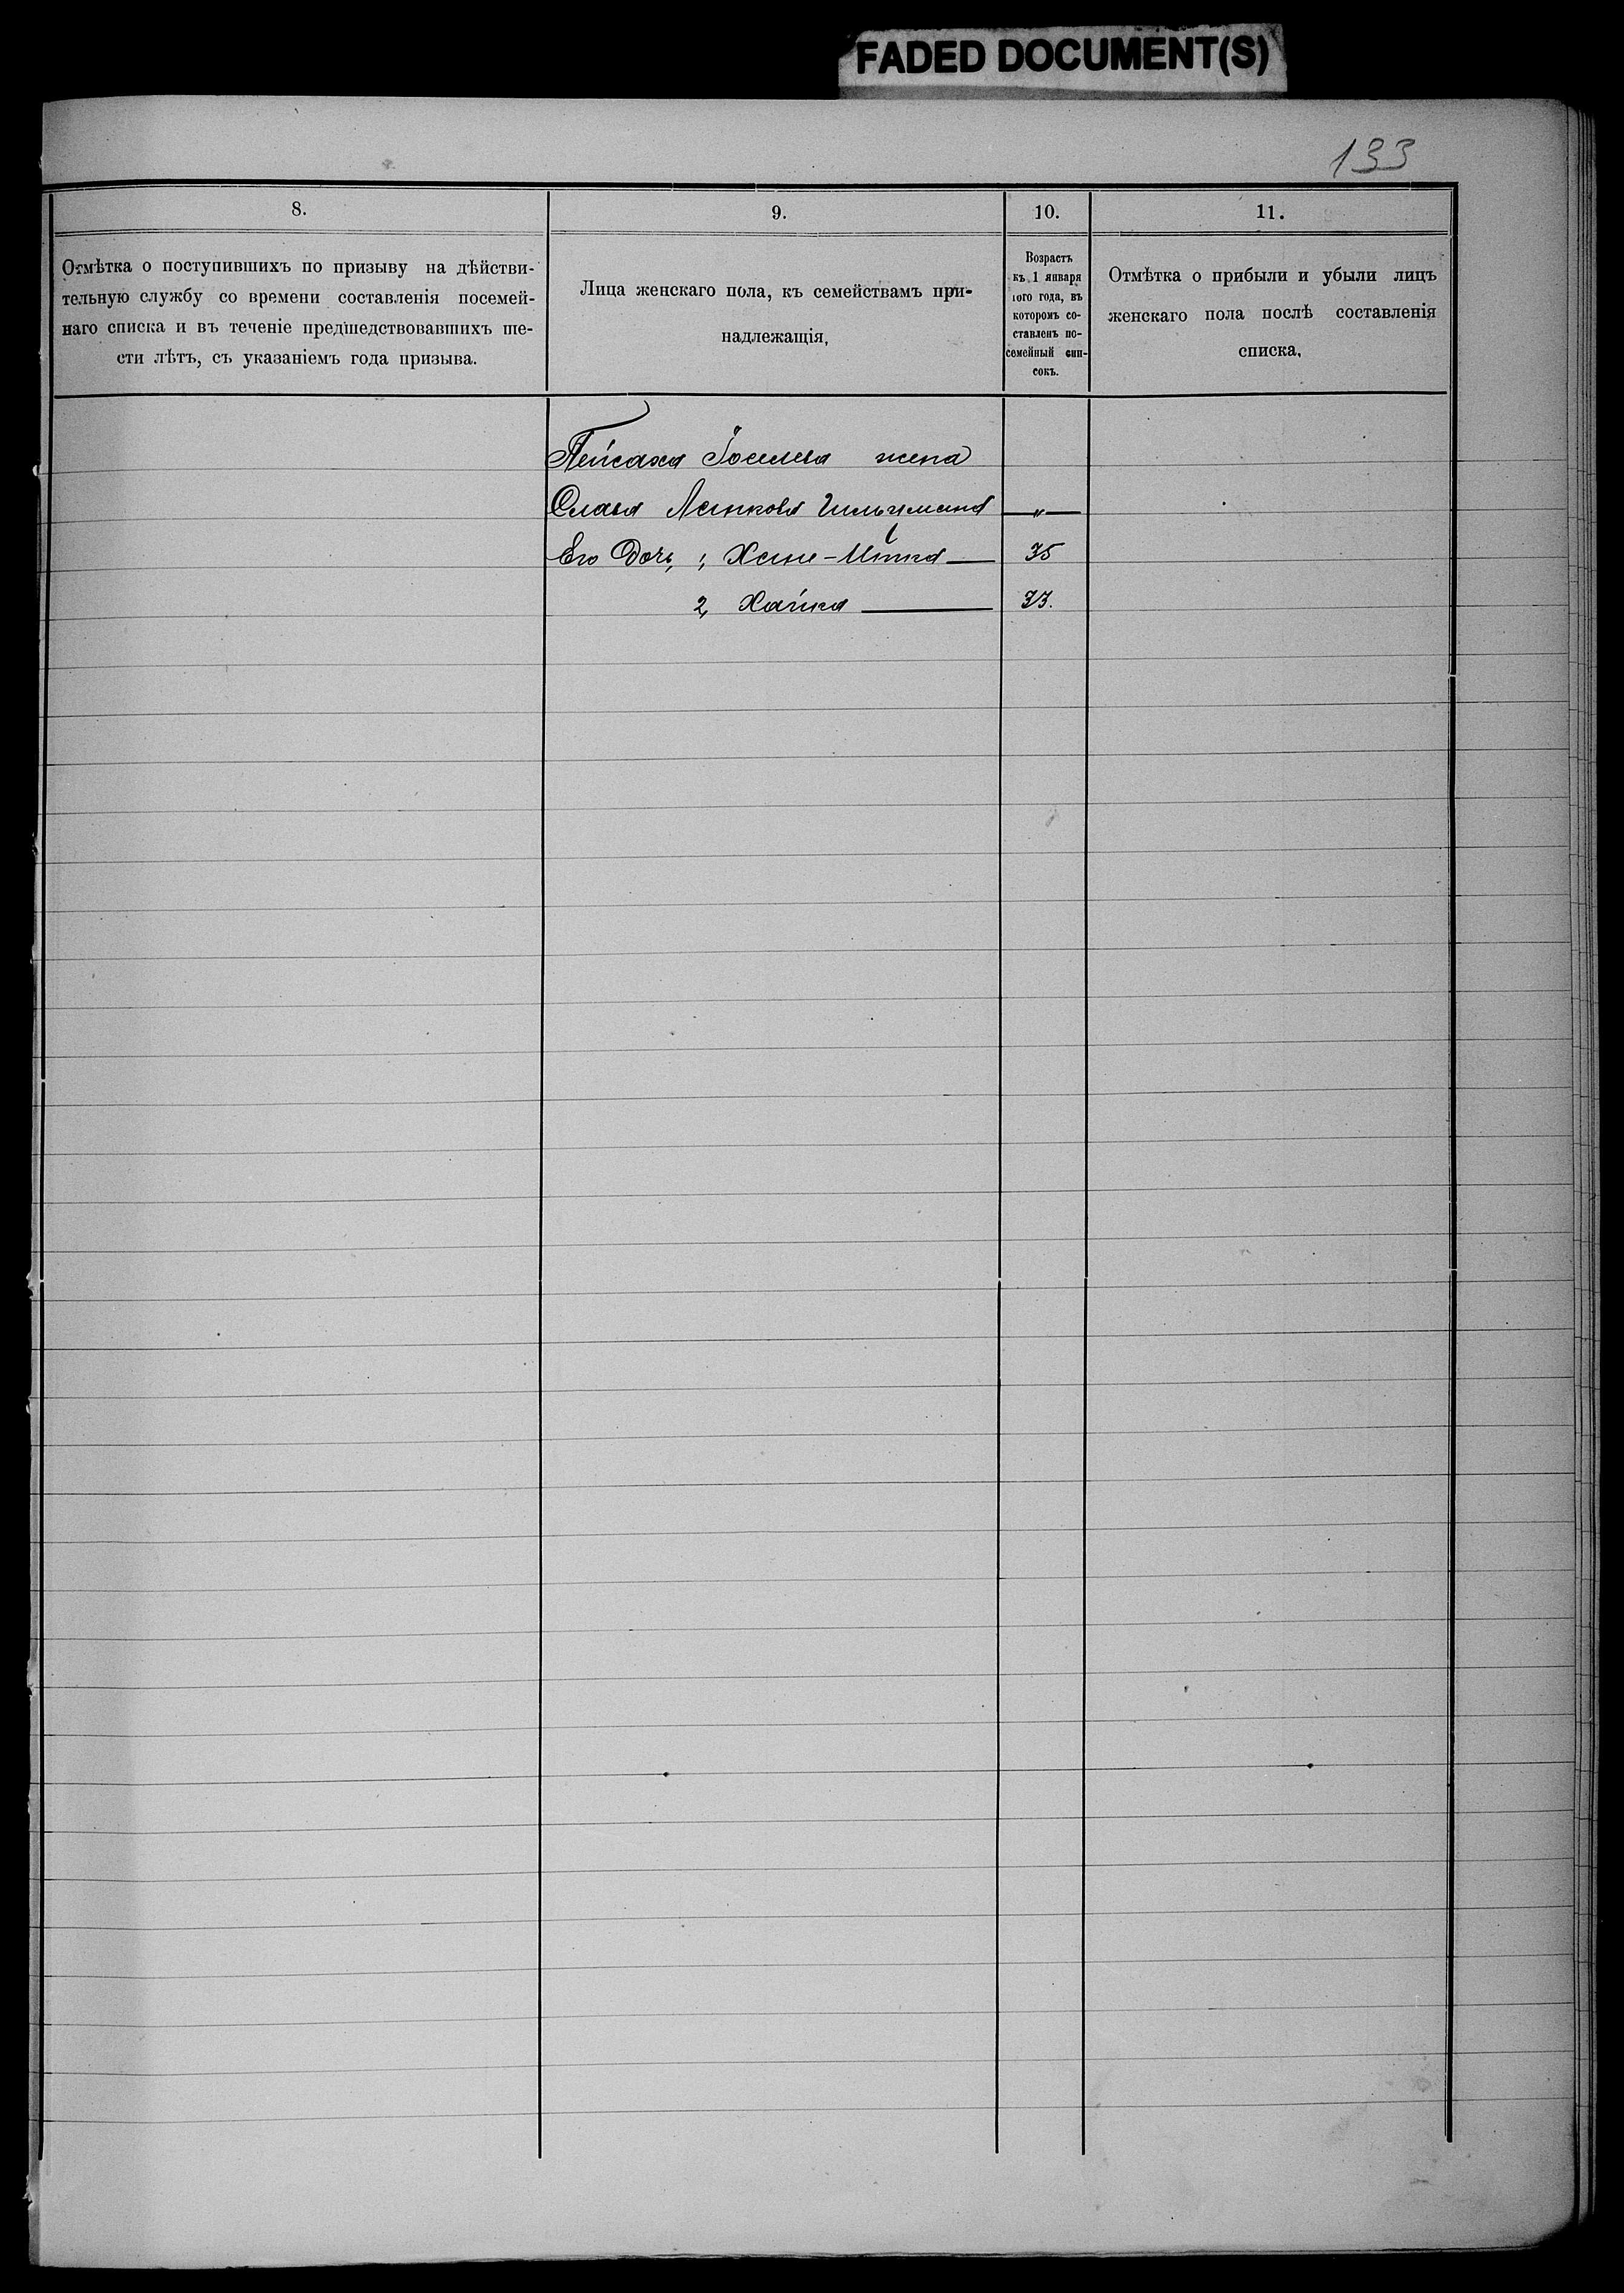 FADED DOCUMENT(S)
133
8.
Отмѣтка о поступившихъ по призыву на дѣйстви-
тельную службу со времени составленія посемей-
наго списка и въ теченіе предшедствовавшихъ ше-
сти лѣтъ, съ указаніемъ года призыва.
9.
Лица женскаго пола, къ семействамъ при-
надлежащія,
10.
Возрастъ
къ 1 января
того года, въ
которомъ со-
ставленъ по-
семейный спи-
сокъ.
11.
Отмѣтка о прибыли и убыли лицъ
женскаго пола послѣ составленія
списка,
Пейсаха Іоселева жена
Слава "
Его Дочь, 1, Хане-Итка 35
2, Хайка 33.